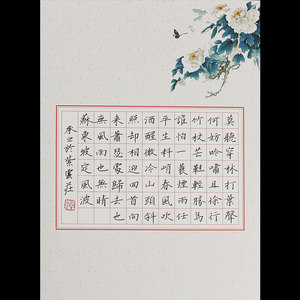 莫聽穿林打葉聲
何妨吟嘯且徐行
竹杖芒鞋輕勝馬
誰怕一蓑煙雨任
平生料峭春風吹
酒醒微冷山頭斜
照却相迎回首向
来蕭瑟處歸去也
無風雨也無晴
蘇東坡定風波
於紫雲莊